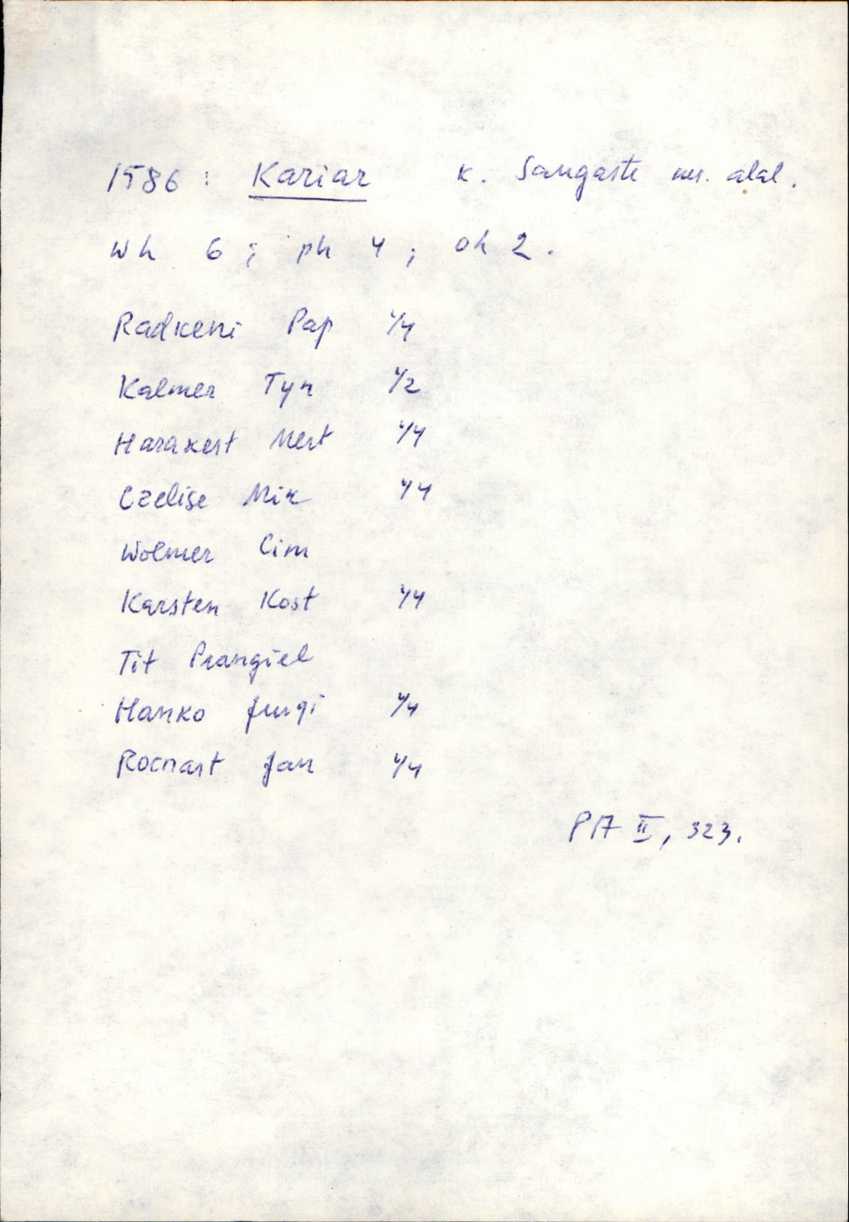 1586 : Kariar k. Sangaste ms. alal.
Wh 6 ; ph 4 ; oh 2.
Radkeni Pap 1/4
Kalmer Tyn 1/2
Harakest Mert 1/4
Czelise Mik 1/4
Wolmer Cim
Karsten Kost 1/4
Tit Prangiel
Hanko Jurgi 1/4
Rocnart Jan 1/4
PA II, 323.